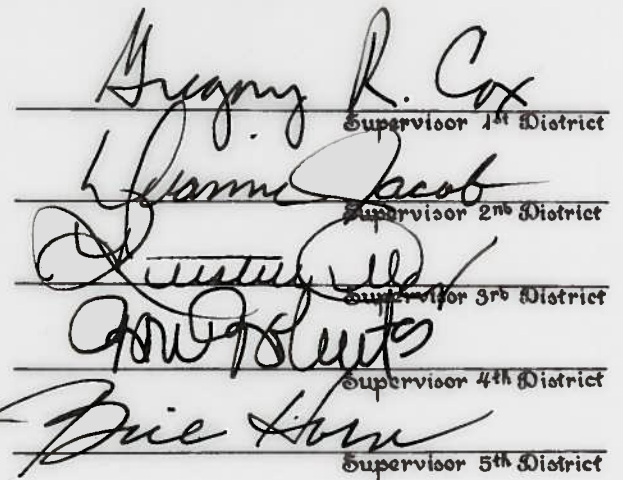 Gregory R. Cox
Supervisor 1st District
Dianne Jacob
Supervisor 2nd District
Supervisor 3rd District
Supervisor 4th District
Horn
Supervisor 5th District